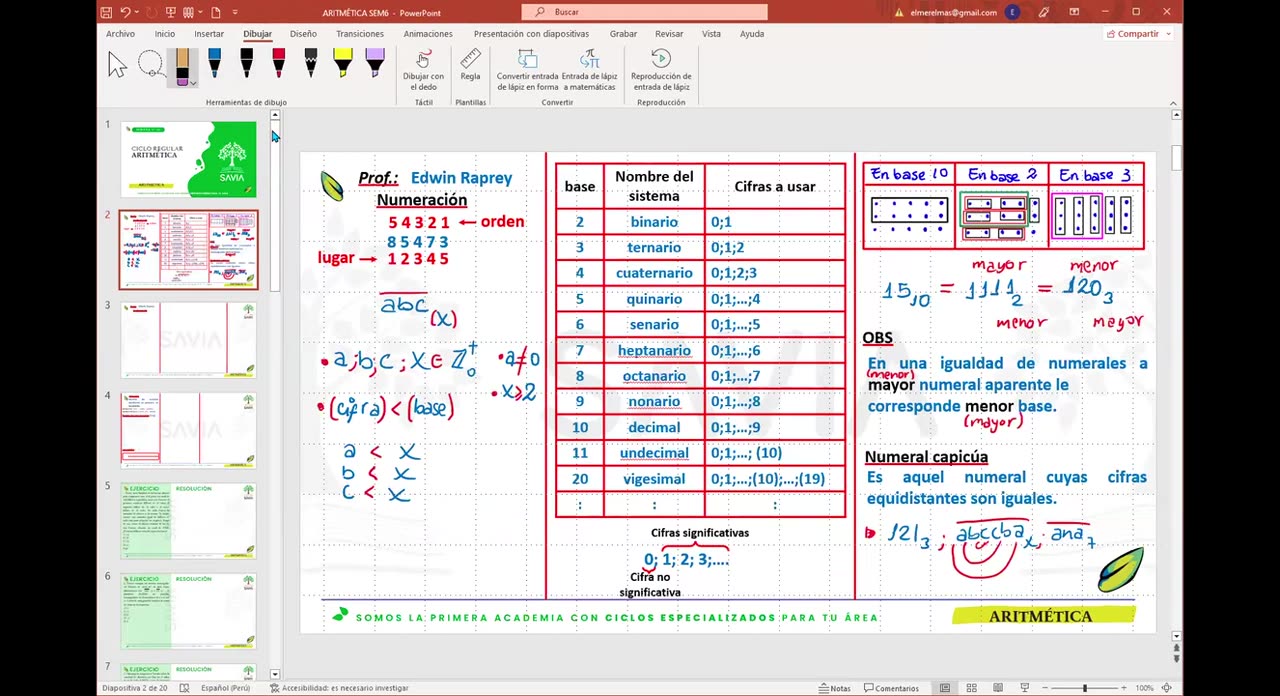 ARITMÉTICA SEM6 - PowerPoint
Buscar
elmerelmas@gmail.com
E
Archivo Inicio Insertar Dibujar Diseño Transiciones Animaciones Presentación con diapositivas Grabar Revisar Vista Ayuda
Compartir
Dibujar con el dedo
Regla
Convertir entrada de lápiz en forma
Entrada de lápiz a matemáticas
Reproducción de entrada de lápiz
Herramientas de dibujo
Táctil
Plantillas
Convertir
Reproducción
1
CICLO REGULAR
ARITMÉTICA
SAVIA
2
3
4
5
EJERCICIO RESOLUCIÓN
6
EJERCICIO RESOLUCIÓN
7
EJERCICIO RESOLUCIÓN
Prof.: Edwin Raprey
Numeración
5 4 3 2 1 ← orden
8 5 4 7 3
lugar → 1 2 3 4 5
abc (x)
• a;b;c;x∈ℤ₀⁺ • a≠0
• x≥2
• (cifra) < (base)
a < x
b < x
c < x
base Nombre del sistema Cifras a usar
2 binario 0;1
3 ternario 0;1;2
4 cuaternario 0;1;2;3
5 quinario 0;1;...;4
6 senario 0;1;...;5
7 heptanario 0;1;...;6
8 octanario 0;1;...;7
9 nonario 0;1;...;8
10 decimal 0;1;...;9
11 undecimal 0;1;...; (10)
20 vigesimal 0;1;...;(10);...;(19)
: : :
Cifras significativas
0; 1; 2; 3;....
Cifra no
significativa
En base 10 En base 2 En base 3
mayor menor
15₁₀ = 1111₂ = 120₃
menor mayor
OBS
En una igualdad de numerales a
(menor)
mayor numeral aparente le
corresponde menor base.
(mayor)
Numeral capicúa
Es aquel numeral cuyas cifras
equidistantes son iguales.
121₃ ; abccbaₓ ; ana₇
SOMOS LA PRIMERA ACADEMIA CON CICLOS ESPECIALIZADOS PARA TU ÁREA
ARITMÉTICA
Diapositiva 2 de 20 Español (Perú) Accesibilidad: es necesario investigar Notas Comentarios 100%